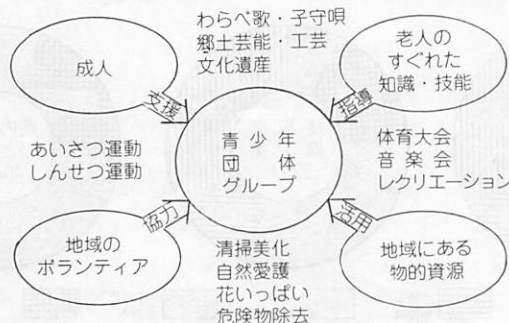 わらべ歌・子守唄
郷土芸能・工芸
文化遺産
成人
老人の
すぐれた
知識・技能
支援
指導
あいさつ運動
しんせつ運動
青少年
団体
グループ
体育大会
音楽会
レクリエーション
協力
活用
地域の
ボランティア
清掃美化
自然愛護
花いっぱい
危険物除去
地域にある
物的資源